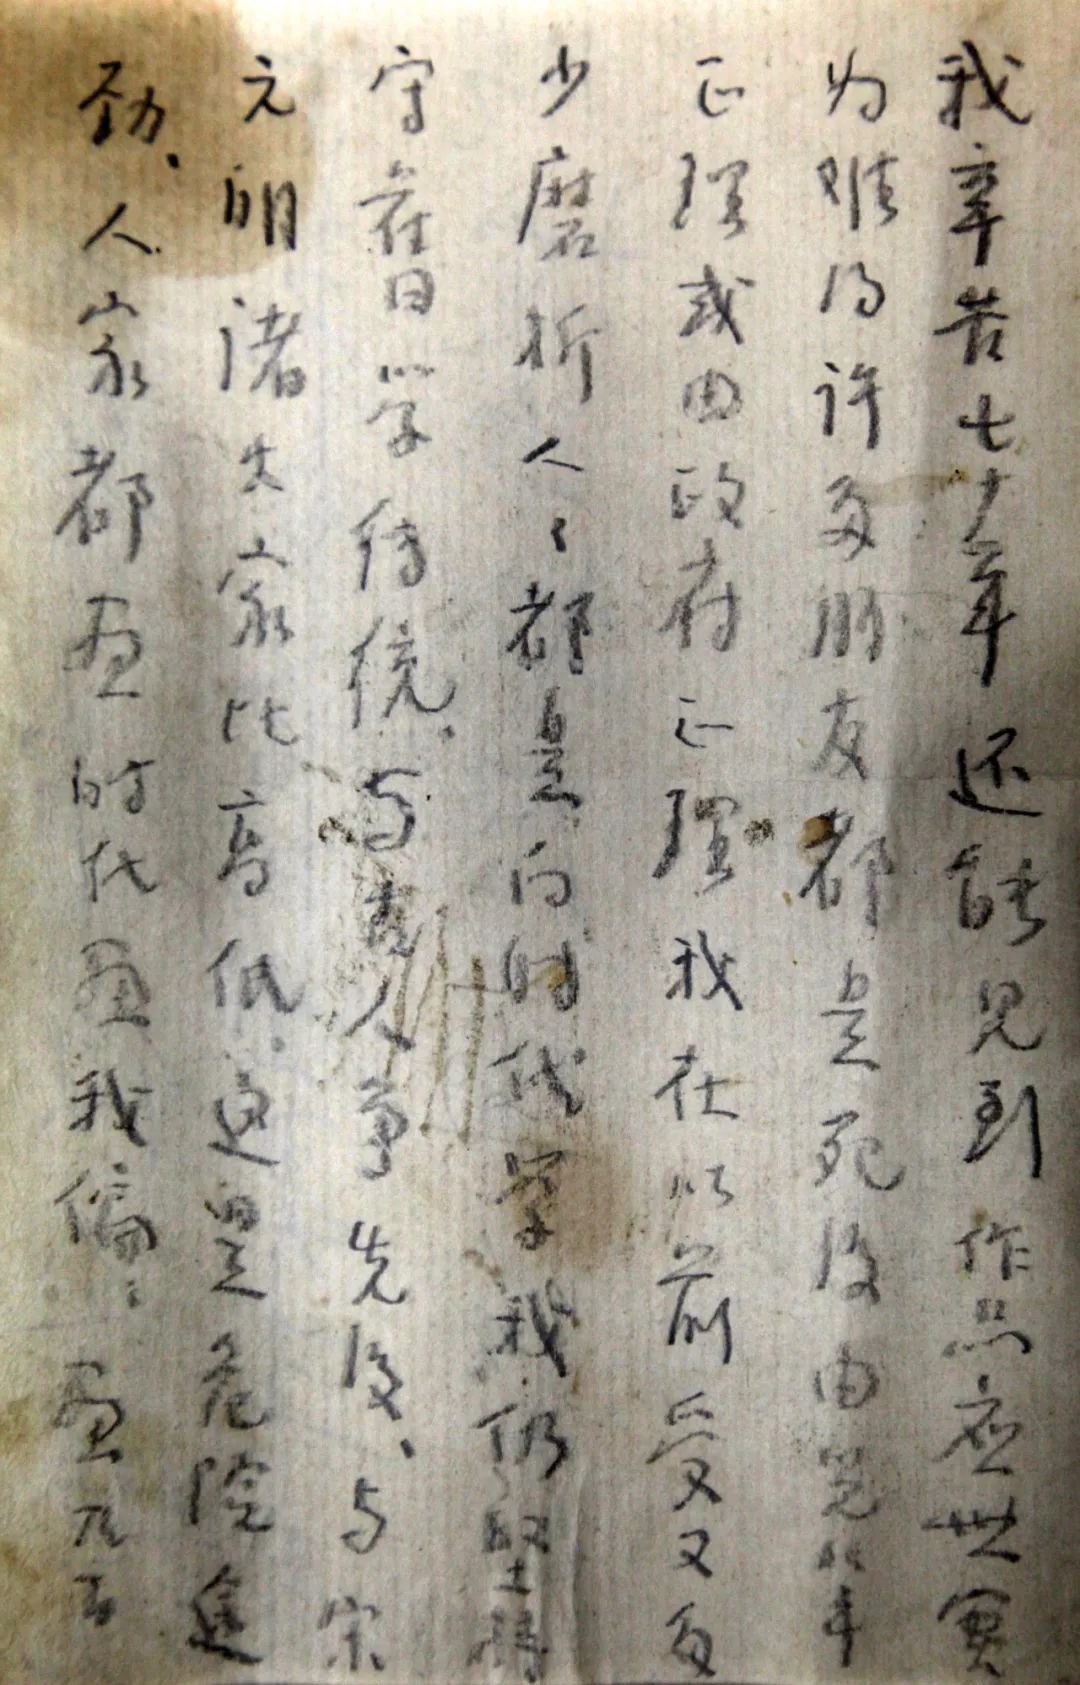 我辛苦七十年还能见到作品应世实
为难得许多朋友都是死后由儿
正理或由政府正理我在以前受又多
少磨折人々都是向时代学我仍坚持
守旧学传统。与古人争先后、与宋
元明诸大家比高低这是危险
劲、人家都画时代画我偏々画